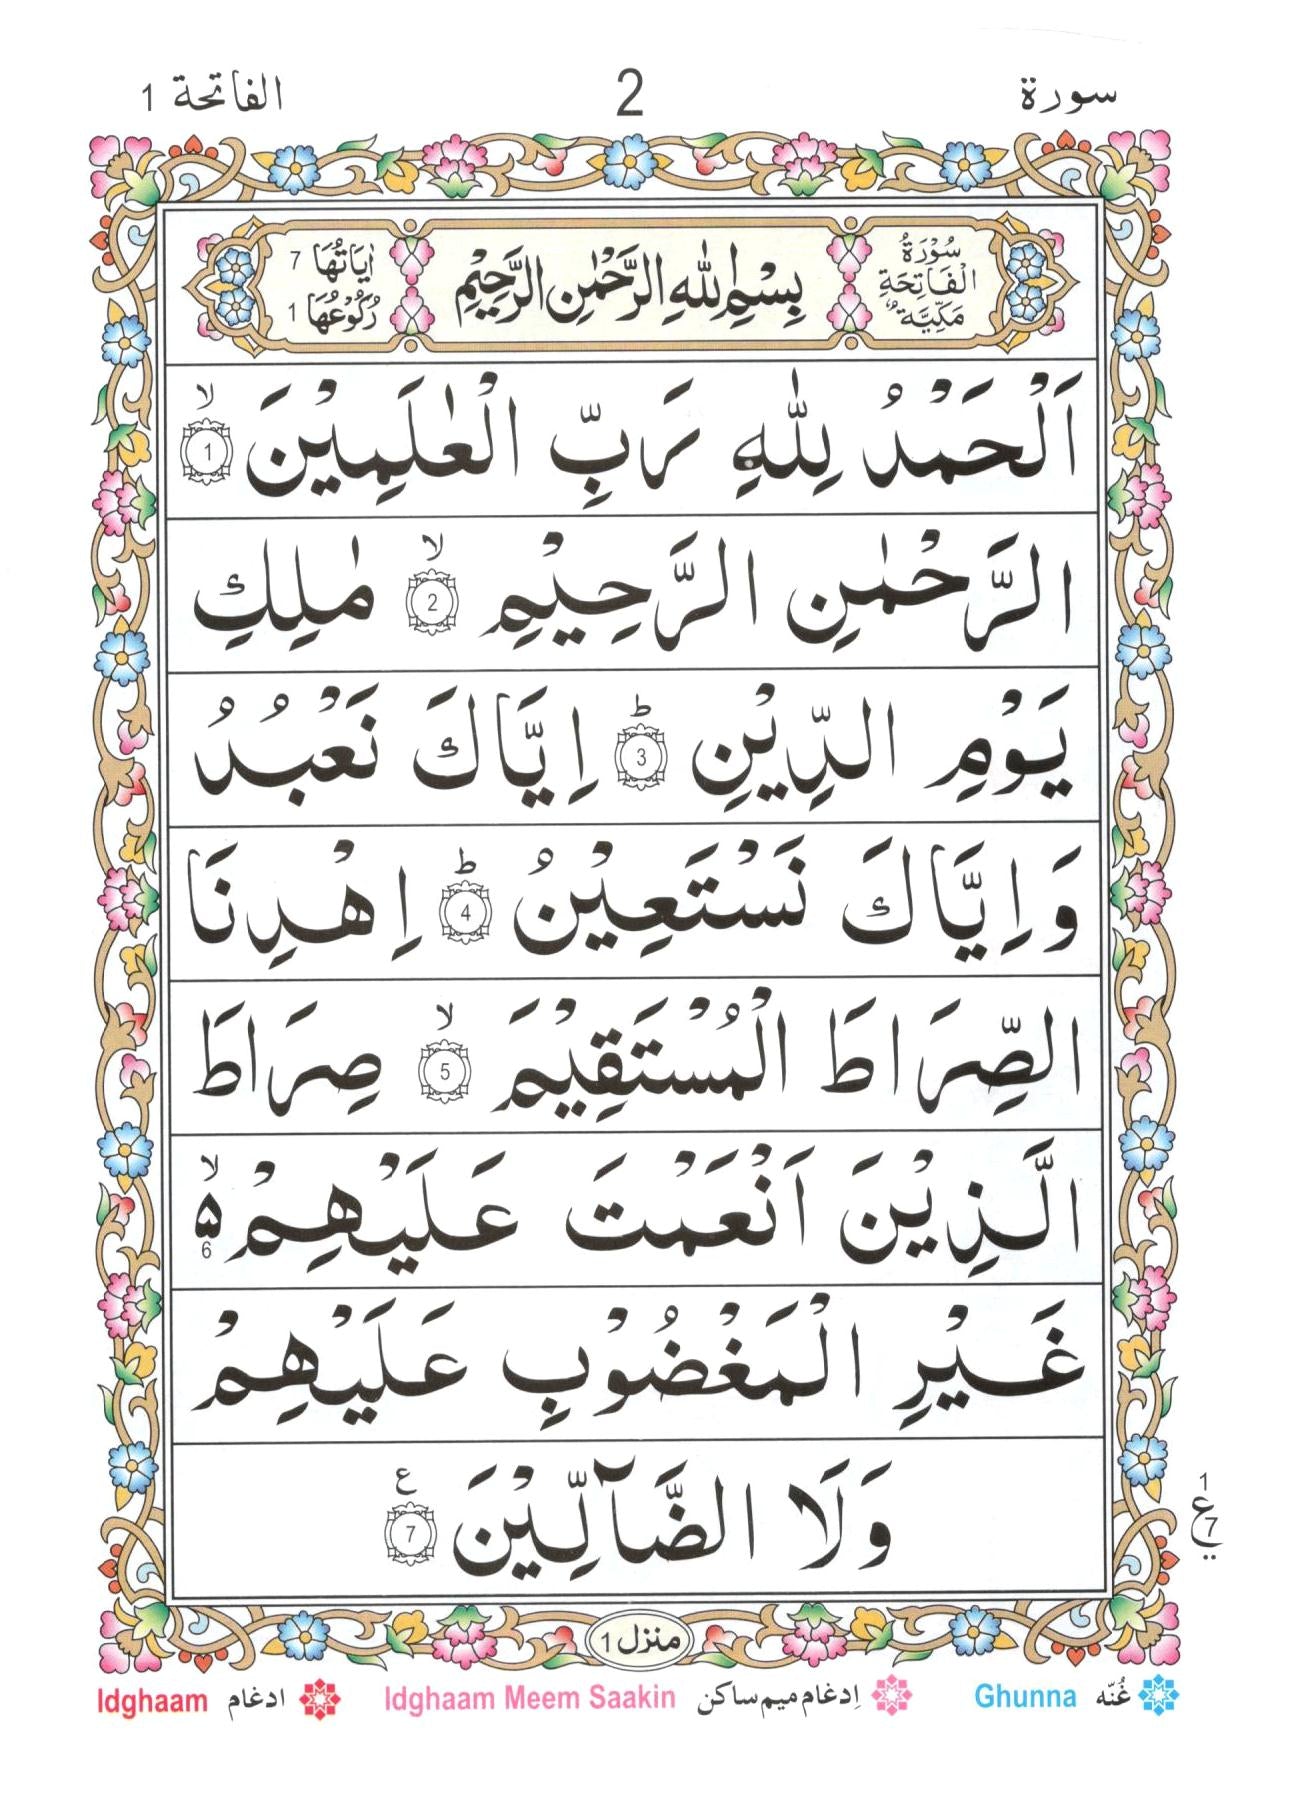 سورة 2 الفاتحة 1
سُوْرَةُ الْفَاتِحَةِ مَكِّيَّةٌ
بِسْمِ اللهِ الرَّحْمٰنِ الرَّحِيْمِ
اٰيَاتُهَا 7
رُكُوْعُهَا 1
اَلْحَمْدُ لِلّٰهِ رَبِّ الْعٰلَمِيْنَ ۙ 1
الرَّحْمٰنِ الرَّحِيْمِ ۙ 2 مٰلِكِ
يَوْمِ الدِّيْنِ ؕ 3 اِيَّاكَ نَعْبُدُ
وَاِيَّاكَ نَسْتَعِيْنُ ؕ 4 اِهْدِنَا
الصِّرَاطَ الْمُسْتَقِيْمَ ۙ 5 صِرَاطَ
الَّذِيْنَ اَنْعَمْتَ عَلَيْهِمْ ۙ ۵ 6
غَيْرِ الْمَغْضُوْبِ عَلَيْهِمْ
وَلَا الضَّآلِّيْنَ ع 7
1 ع 7
منزل 1
Ghunna غُنّه
Idghaam Meem Saakin اِدغام میم ساکن
Idghaam ادغام